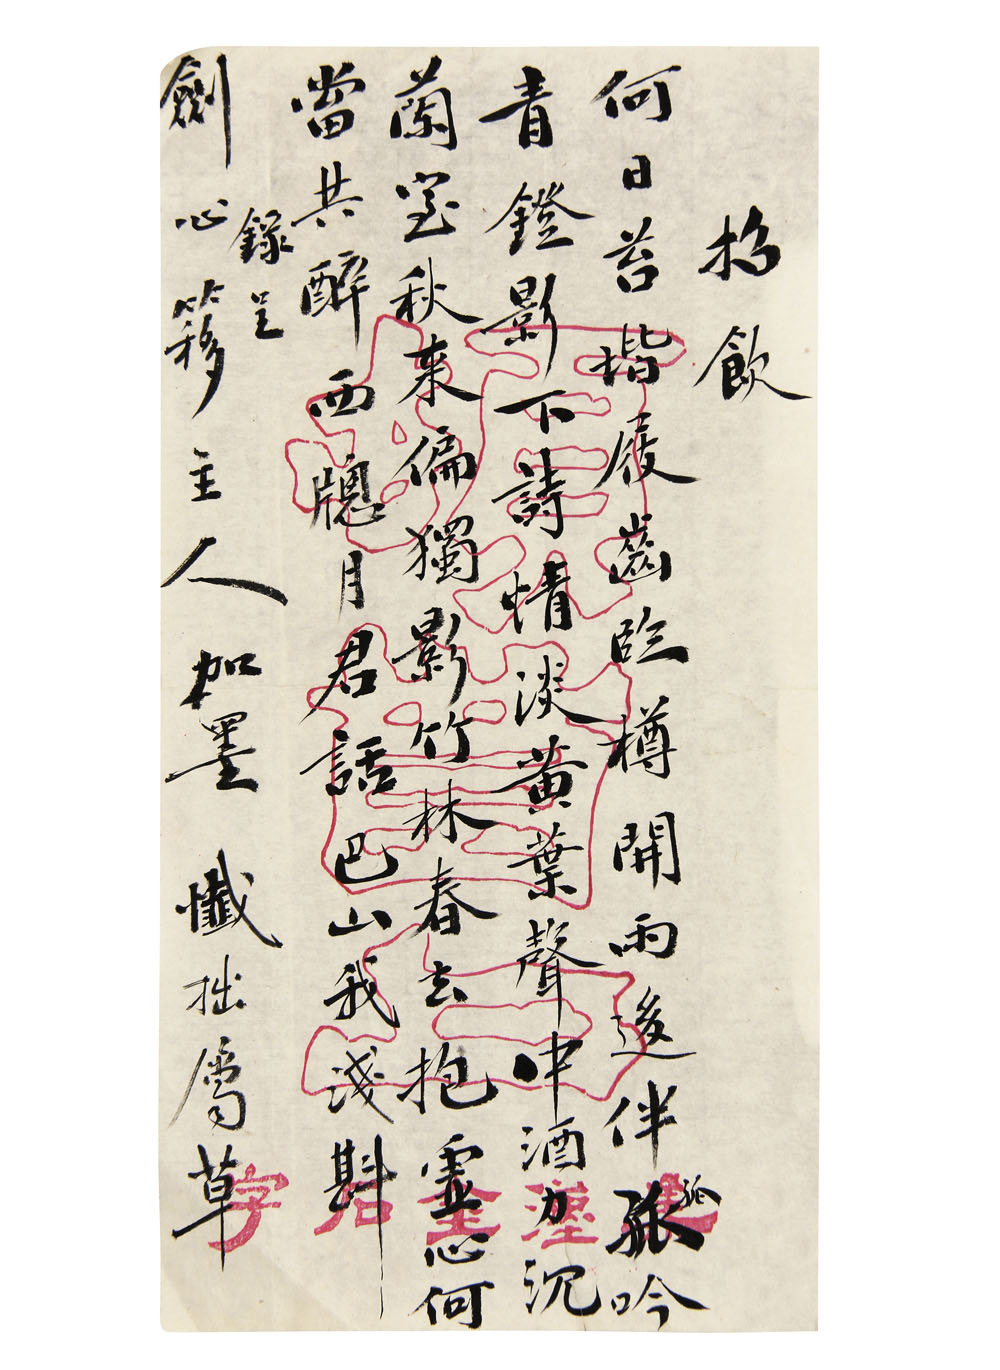 招飲
何日苔堦屐齒臨樽開雨後伴孤吟
青鐙影下詩情淡黃葉聲中酒力沉
蘭室秋來偏獨影竹林春去抱虛心何
當共醉西牕月君話巴山我淺斟
錄呈
劍心簃主人加墨 懺拙屬草
金石字